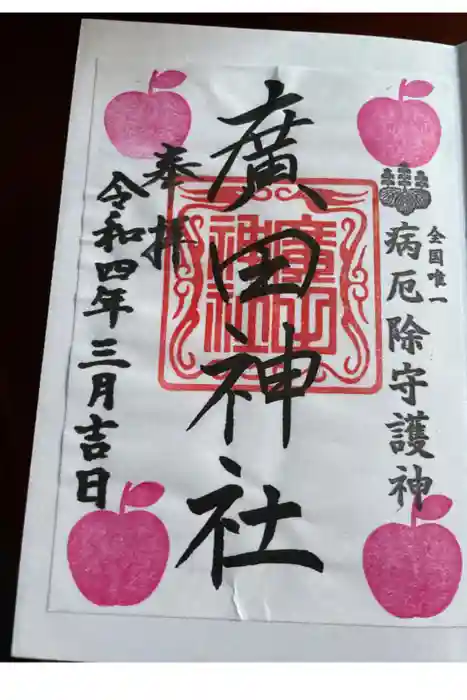 全国唯一
病厄除守護神
廣田神社
廣田
神社
奉拝
令和四年三月吉日